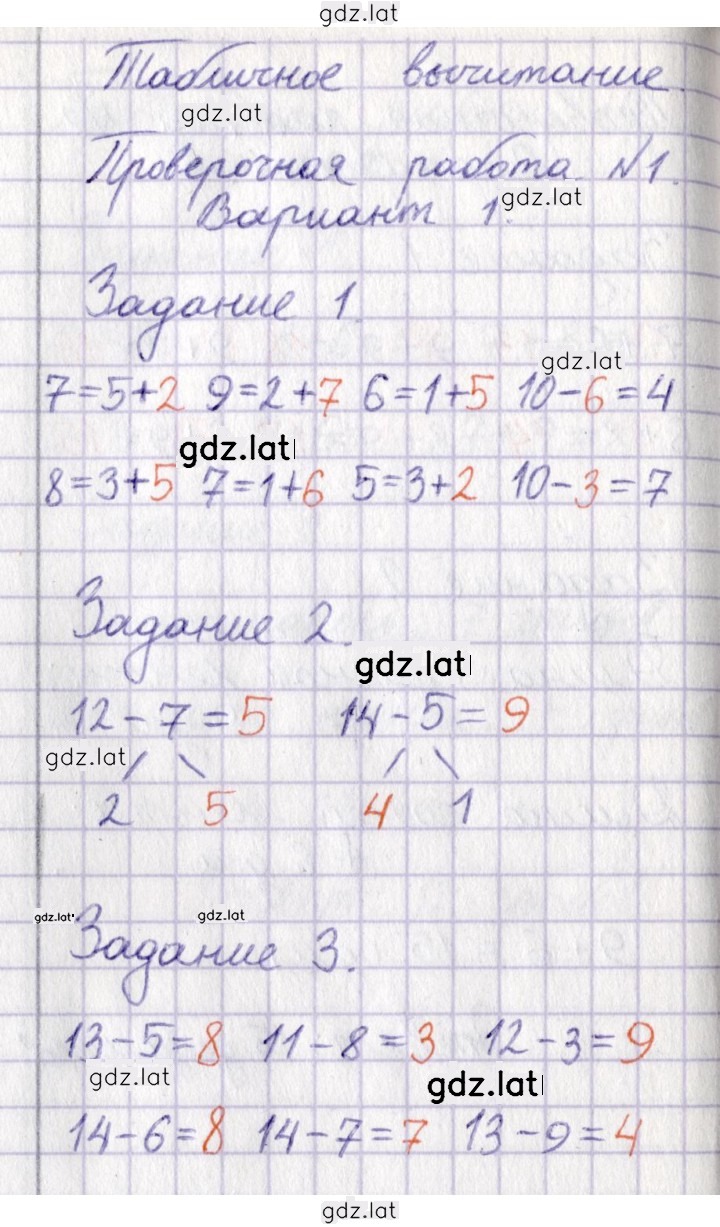 gdz.lat
Табличное вычитание.
gdz.lat
Проверочная работа №1.
Вариант 1.
gdz.lat
Задание 1.
gdz.lat
7=5+2 9=2+7 6=1+5 10-6=4
gdz.lat
8=3+5 7=1+6 5=3+2 10-3=7
Задание 2.
gdz.lat
12-7=5 14-5=9
gdz.lat
2 5 4 1
gdz.lat gdz.lat
Задание 3.
13-5=8 11-8=3 12-3=9
gdz.lat gdz.lat
14-6=8 14-7=7 13-9=4
gdz.lat